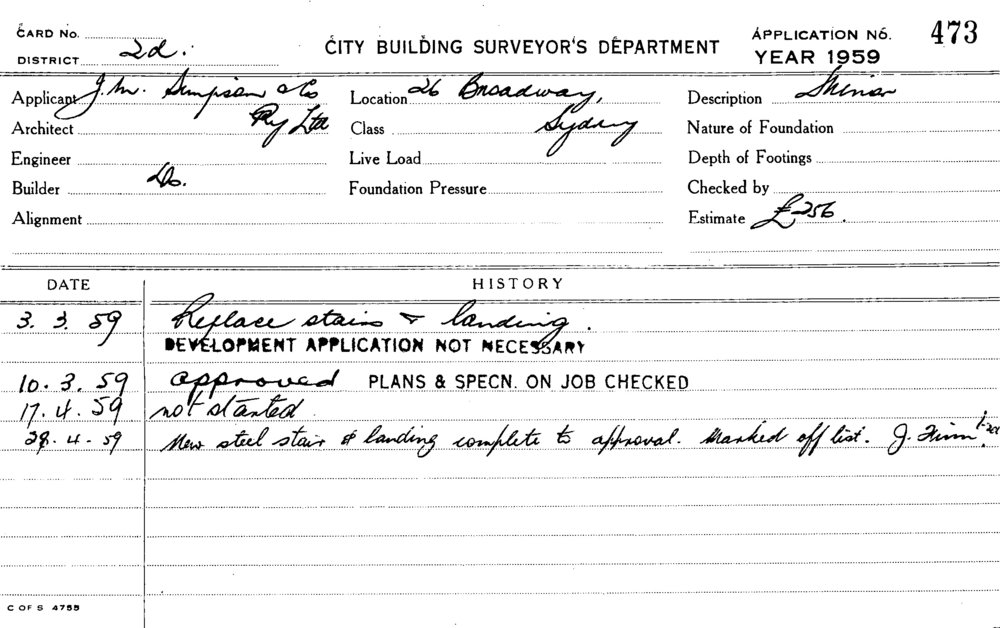 CARD No.
DISTRICT 2d.
CITY BUILDING SURVEYOR'S DEPARTMENT
APPLICATION No. 473
YEAR 1959
Applicant J. M. Simpson & Co
Pty Ltd
Location 26 Broadway,
Sydney
Description Minor
Architect
Class
Nature of Foundation
Engineer
Live Load
Depth of Footings
Builder Do.
Foundation Pressure
Checked by
Alignment
Estimate £256.
DATE HISTORY
3. 3. 59 Replace stairs & landing.
DEVELOPMENT APPLICATION NOT NECESSARY
10. 3. 59 approved PLANS & SPECN. ON JOB CHECKED
17. 4. 59 not started
28. 4. 59 New steel stair & landing complete to approval. Marked off list. J.
C OF S 4755